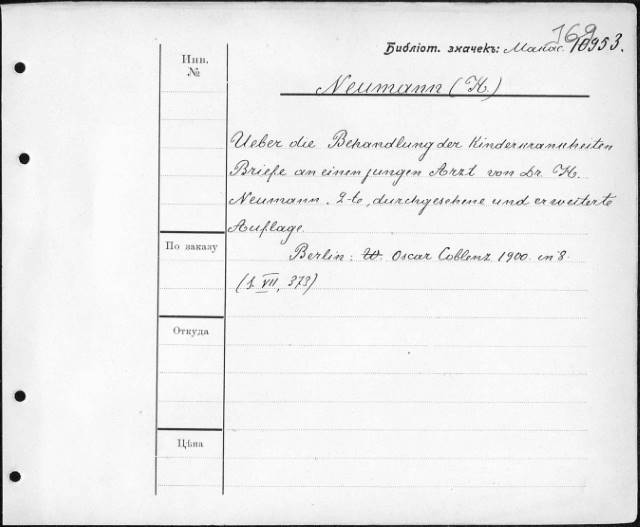 169
Библіот. значекъ: Макас. 10953.
Инв.
№
Neumann (H.)
Ueber die Behandlung der Kinderkrankheiten
Briefe an einen jungen Arzt von Dr. H.
Neumann. 2-te, durchgesehene und erweiterte
Auflage
По заказу
Berlin: W. Oscar Coblenz 1900. in 8.
VII, 373)
Откуда
Цѣна